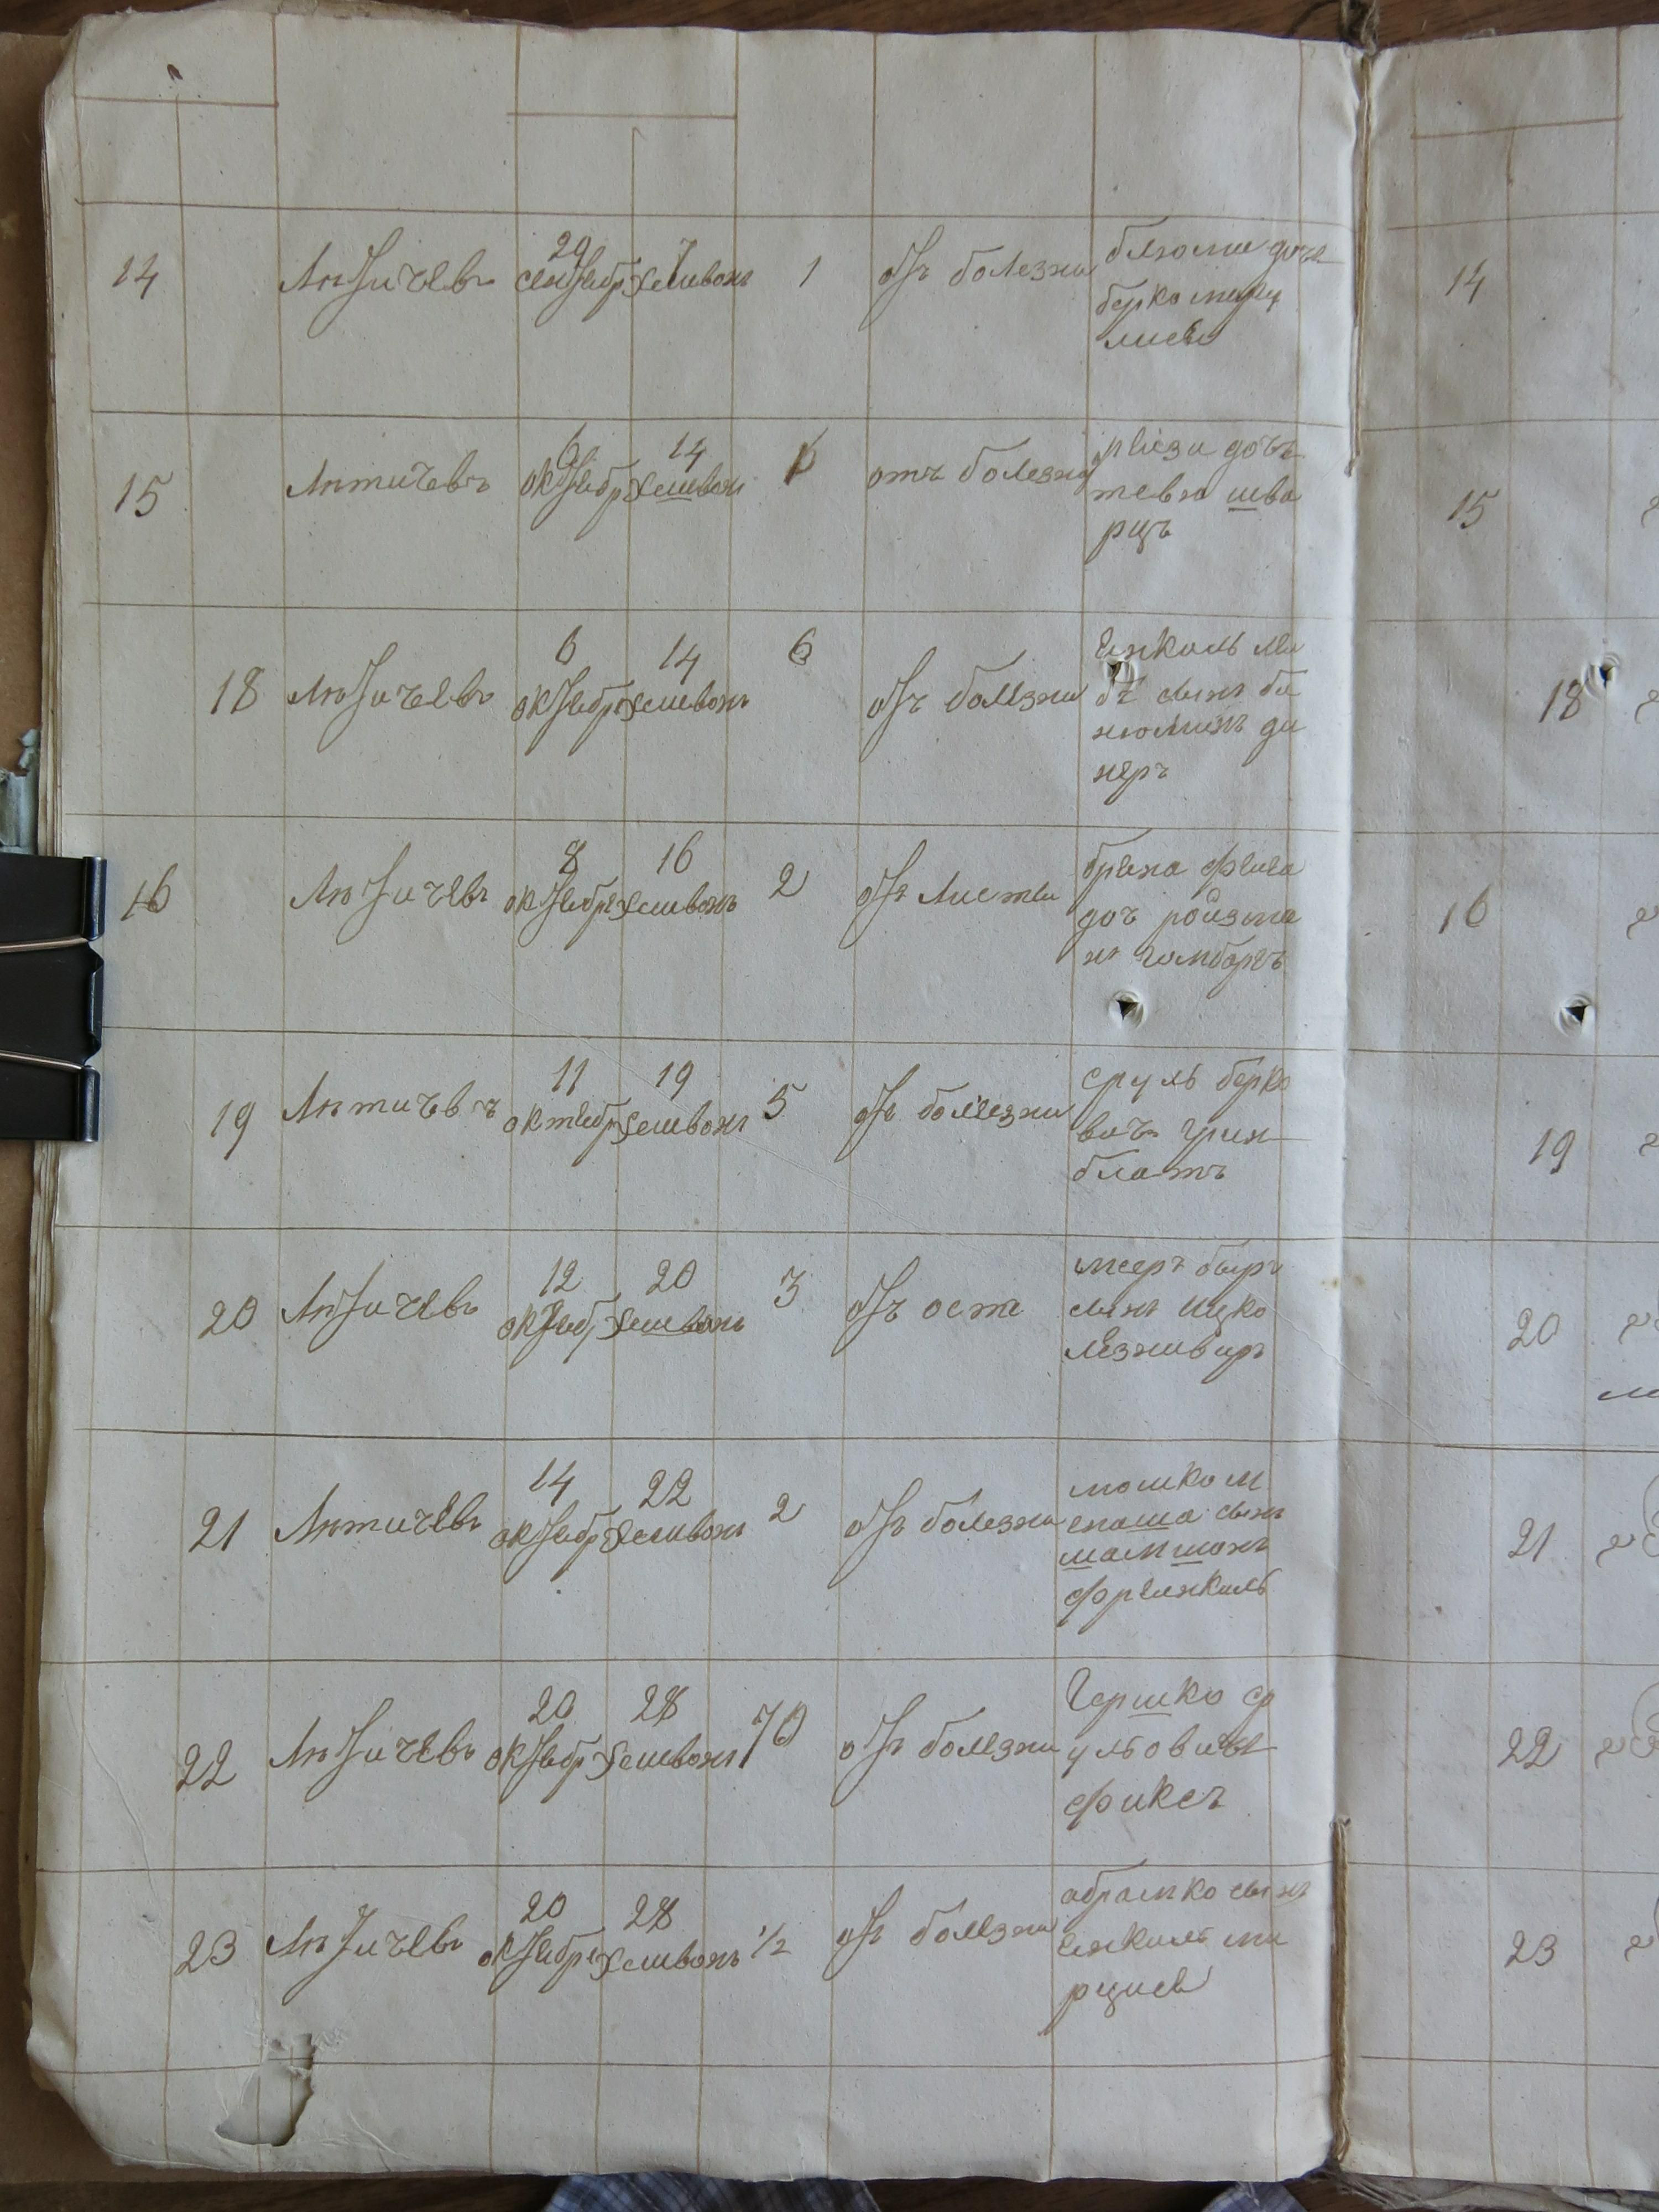 14 Литичевъ 29 сентебр 7 хешвонъ 1 отъ болезни
дочь
берко
15 Литичевъ 6 октебр 14 хешвон отъ болезни
дочь
тевю шва
рцъ
18 Литичевъ 6 октебр 14 хешвонъ 6 отъ болезни
Енкель Ле
бъ сынъ би
нюминъ ди
неръ
16 Литичевъ 8 октебре 16 хешвонъ 2 отъ
фейга
доч ройзма
нъ
19 Литичевъ 11 октебр 19 хешвонъ 5 отъ болезни
сруль берко
вичъ грин
блатъ
20 Литичевъ 12 октебр 20 хешвонъ 3 отъ оспе
меер бер
сынъ ицко
21 Литичевъ 14 октебр 22 хешвонъ 2 отъ болезни
мошко м
енаша сынъ
шамшонъ
френкель
22 Литичевъ 20 октебр 28 хешвонъ 70 отъ болезни
Гершко ср
ульовичъ
фиксъ
23 Литичевъ 20 октебре 28 хешвонъ 1/2 отъ болезни
абрамко сынъ
енкель
14
15
18
16
19
20
21
22
23